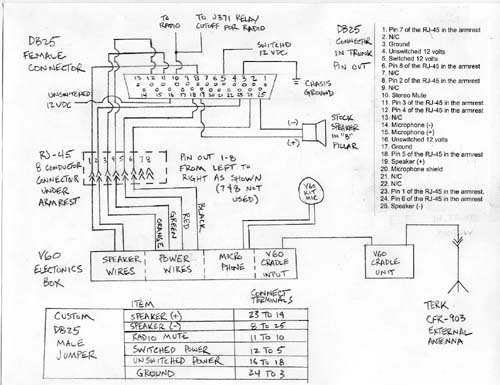 TO RADIO
TO J371 RELAY/
CUTOFF FOR RADIO
DB25
FEMALE
CONNECTOR
SWITCHED
12 VDC
UNSWITCHED
12 VDC
13 12 11 10 9 8 7 6 5 4 3 2 1
25 24 23 22 21 20 19 18 17 16 15 14
CHASIS
GROUND
DB25
CONNECTOR
IN TRUNK
PIN OUT
1. Pin 7 of the RJ-45 in the armrest
2. N/C
3. Ground
4. Unswitched 12 volts
5. Switched 12 volts
6. Pin 8 of the RJ-45 in the armrest
7. N/C
8. Pin 2 of the RJ-45 in the armrest
9. N/C
10. Stereo Mute
11. Pin 3 of the RJ-45 in the armrest
12. Pin 4 of the RJ-45 in the armrest
13. N/C
14. Microphone (-)
15. Microphone (+)
16. Unswitched 12 volts
17. Ground
18. Pin 5 of the RJ-45 in the armrest
19. Speaker (+)
20. Microphone shield
21. N/C
22. N/C
23. Pin 1 of the RJ-45 in the armrest.
24. Pin 6 of the RJ-45 in the armrest
25. Speaker (-)
(-)
(+)
STOCK
SPEAKER
IN "B"
PILLAR
RJ-45
8 CONDUCTOR
CONNECTOR
UNDER
ARMREST
1 2 3 4 5 6 7 8
PIN OUT 1-8
FROM LEFT TO
RIGHT AS SHOWN
(7 & 8 NOT
USED)
ORANGE
GREEN
RED
BLACK
V60
KIT
MIC
V60
ELECTONICS
BOX
SPEAKER
WIRES
POWER
WIRES
MICRO
PHONE
V60
CRADLE
INPUT
V60
CRADLE
UNIT
TERK
CFR-903
EXTERNAL
ANTENNA
CUSTOM
DB25
MALE
JUMPER
ITEM
CONNECT
TERMINALS
SPEAKER (+) 23 TO 19
SPEAKER (-) 8 TO 25
RADIO MUTE 11 TO 10
SWITCHED POWER 12 TO 5
UNSWITCHED POWER 16 TO 18
GROUND 24 TO 3